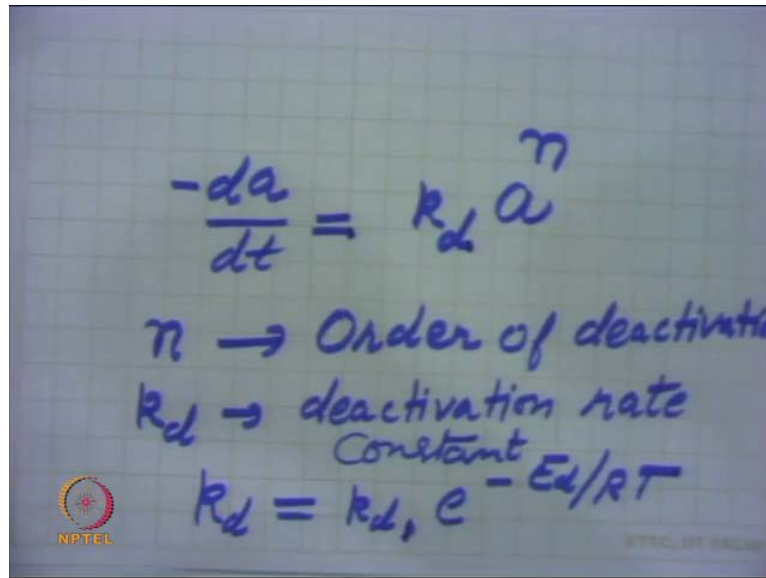 -da/dt = k_d a^n
n → Order of deactivati
k_d → deactivation rate
Constant
k_d = k_d, e^-Ed/RT
NPTEL